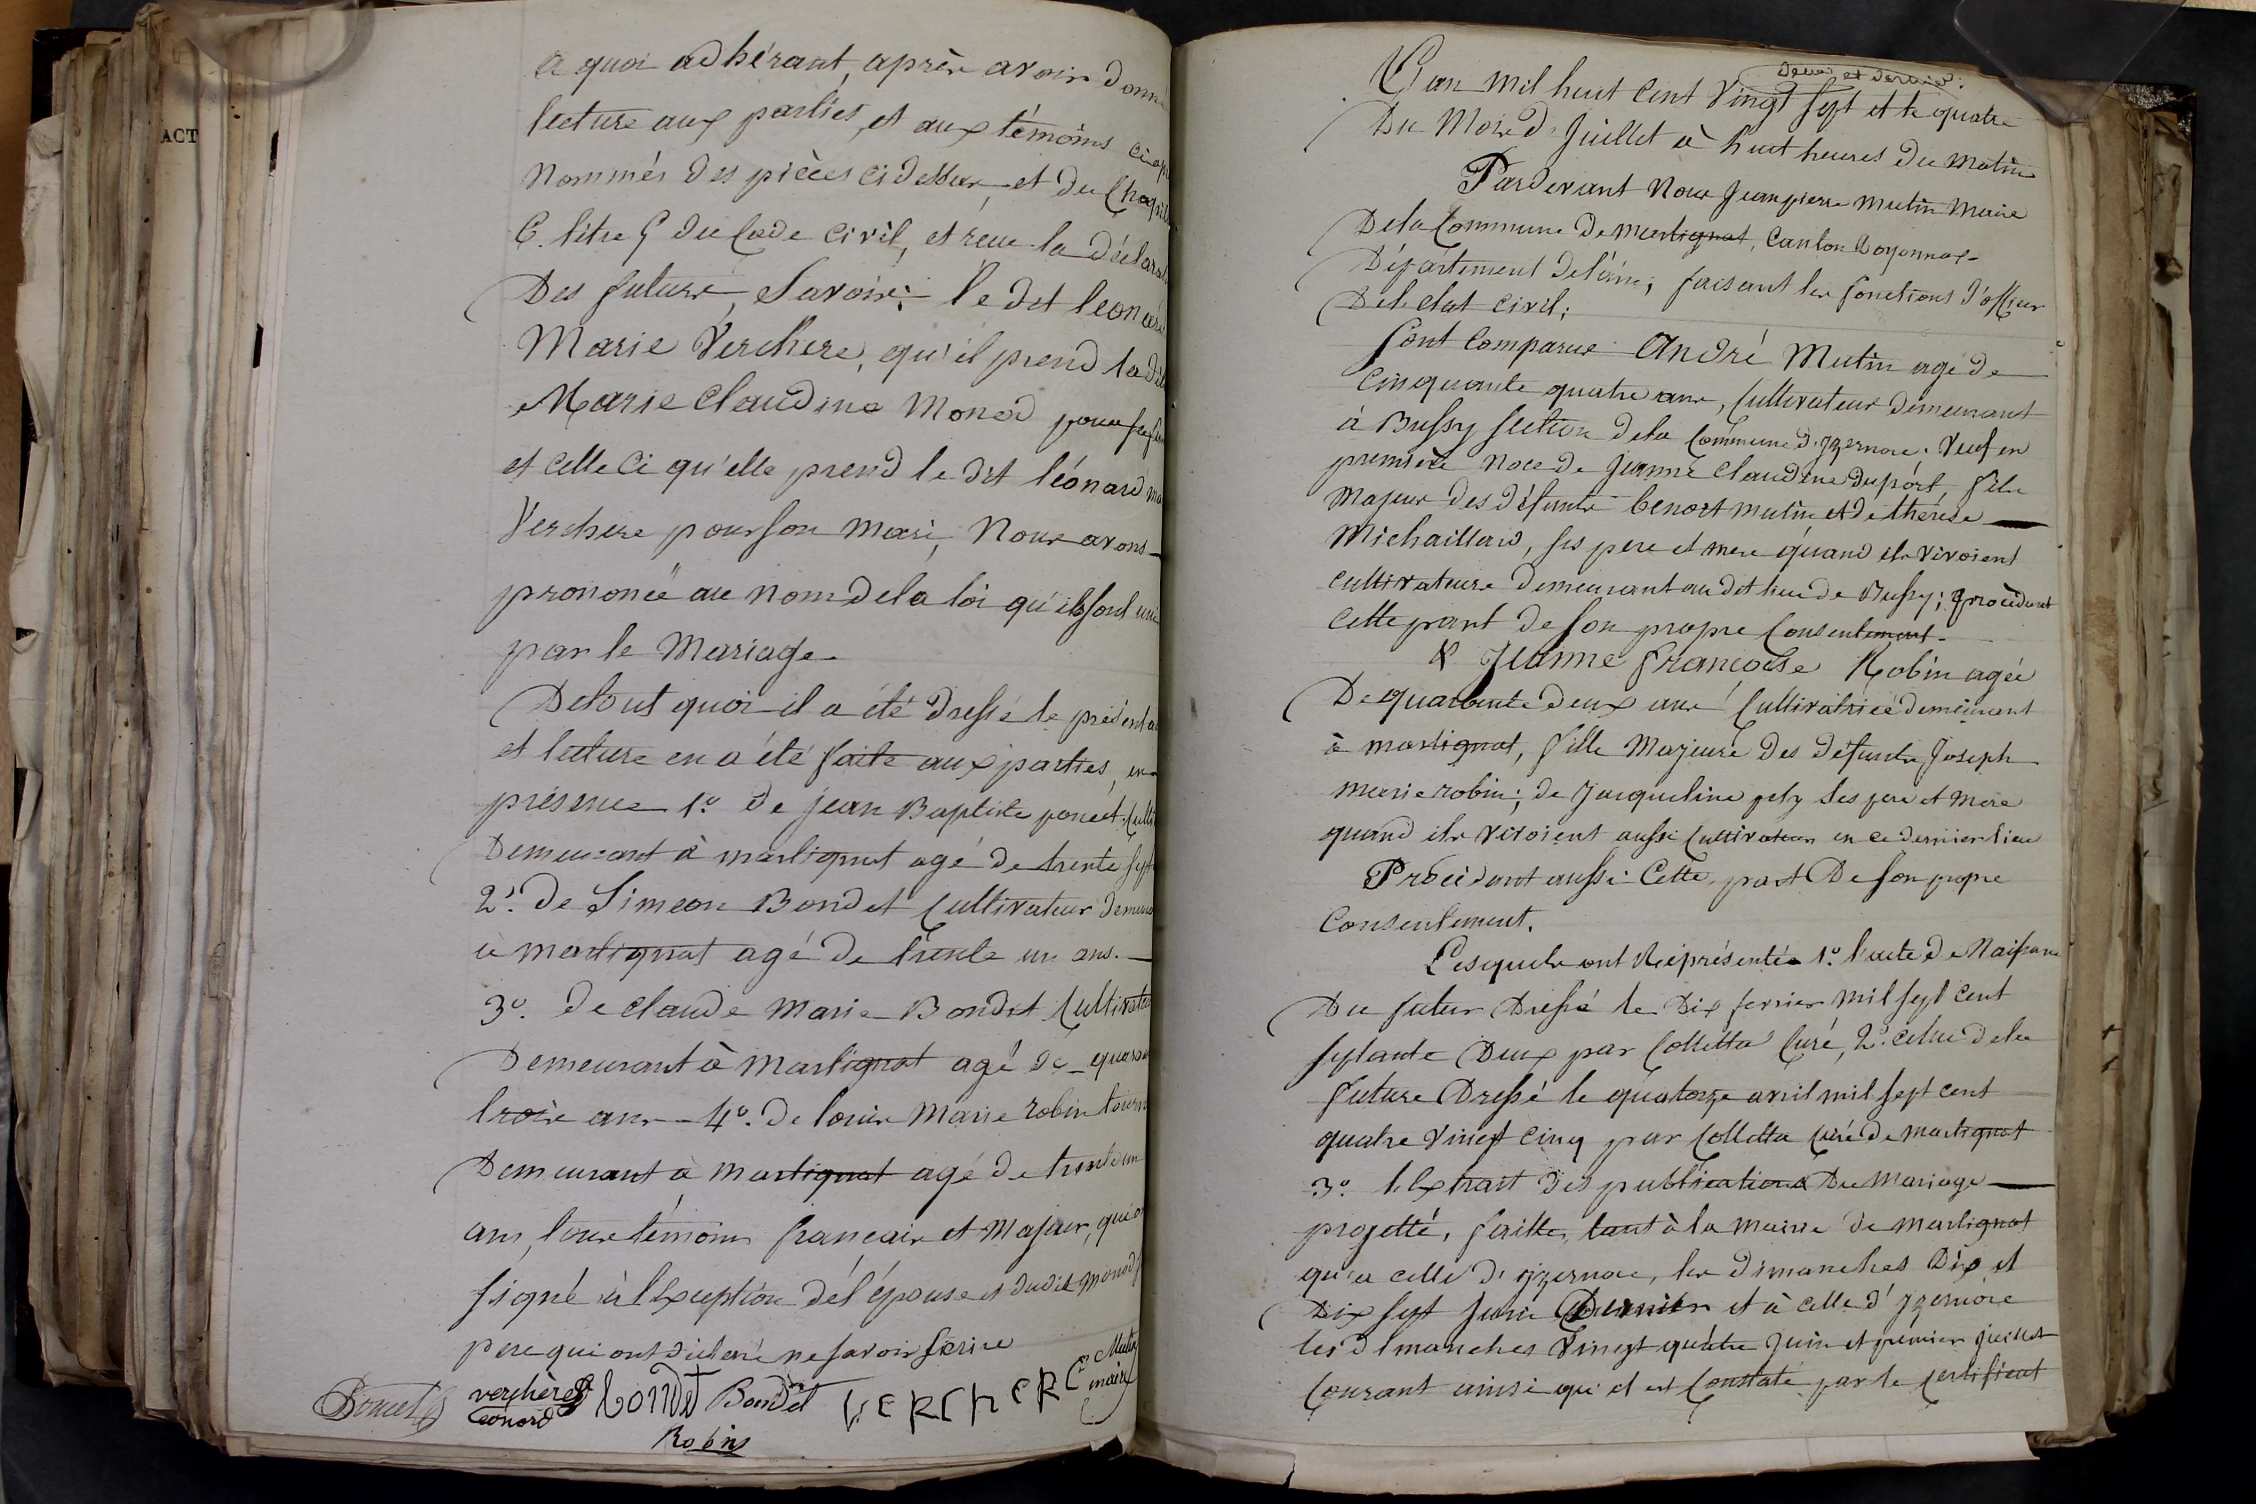 ACT
a quoi adhérant, après avoir donné
lecture aux parties, et aux témoins ci après
Nommés des pièces ci dessus, et du Chapitre
6. titre 5 du Code Civil, et reçue la déclarat
Des futurs, Savoir; le dit leonard
Marie Verchere, qu'il prend la dit
Marie Claudine Monod pour sa fem
et celle ci qu'elle prend le dit léonard ma
Verchere pour son mari, Nous avons
prononcé au nom de la loi qu'ils sont unis
par le Mariage
De tout quoi il a été dressé le présent a
et lecture en a été faite aux parties, en
présence 1º de jean Baptiste poncet Culti
Demeurant à martignat agé de trente sept
2º. De Simeon Bondet Cultivateur demeu
à martignat agé de trente un ans.
3º. de claude Marie Bondet Cultivateu
Demeurant à Martignat agé de quaran
trois ans 4º. De louis Marie robin tourn
Demeurant à Martignat agé de trente un
ans, tous témoins français et Majeur, qui o
signé à l'Exception de l'épouse et dudit Monod
pere qui ont déclaré ne savoir Ecrire
Poncet verchère Bondet Bondet VERCHERE Mutin
Leonard maire
Robin
L'an mil huit Cent Vingt sept et le quatre
Du Mois de Juillet à huit heures du matin
Pardevant Nous Jean pierre mutin Maire
De la Commune De Martignat, Canton Doyonnax
Département de l'ain; faisant les fonctions d'officier
De l'etat civil;
Sont Comparus André Mutin agé de
Cinquante quatre ans, Cultivateur demeurant
à Bussy section de la Commune d'jzernore. Veuf en
première Noce de Jeanne Claudine duport fils
Majeur des défunts benoit mutin et de thérése
Michaillard, ses pere et mere quand ils vivoient
cultivateurs demeurant au dit lieu de Bussy; procèdant
cette part de son propre Consentement.
& Jeanne françoise Robin agée
De quarante deux ans Cultivatrice demeurant
à martignat, fille Majeure Des défunts Joseph
marie robin; de Jacqueline gely ses pere et Mere
quand ils vivoient aussi Cultivateurs en ce dernier lieu
Procédant aussi Cette part De son propre
Consentement.
Lesquels ont Représentés 1º. l'acte De Naissance
Du futur Dressé le Dix fevrier mil sept cent
septante Deux par Colletta Curé, 2º. celui de la
future Dressé le quatorze avril mil sept cent
quatre Vingt cinq par Colletta Curé de Martignat
3º. l'Extrait Des publications Du Mariage
projetté, faittes, tant à la Mairie de Martignat
qu'a celle d'jzernore, les dimanches Dix et
Dix sept Juin Dernier et à celle d'jzernore
les Dimanches Vingt quatre Juin et premier Juillet
Courant ainsi qu'il est Constaté par le Certificat